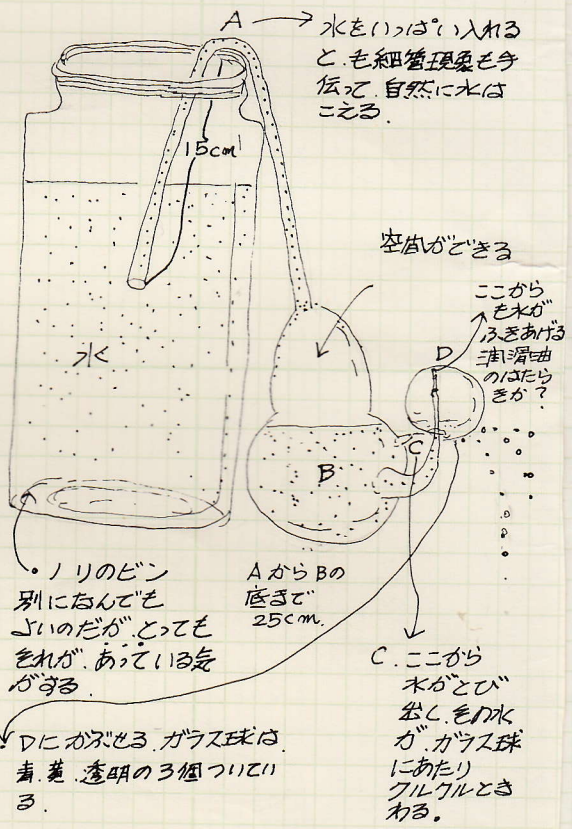 A
水をいっぱい入れる
と、も細管現象も手
伝って、自然に水は
こえる。
15cm
空間ができる
ここから
も水が
ふきあげる
潤滑油
のはたら
きか？
D
水
C
B
・ノリのビン
別になんでも
よいのだが、とっても
それが、あっている気
がする。
AからBの
底まで
25cm.
C.ここから
水がとび
出し、その水
が、ガラス球
にあたり
クルクルとま
わる。
・Dにかぶせる、ガラス球は、
青、黄、透明の3個ついてい
る。